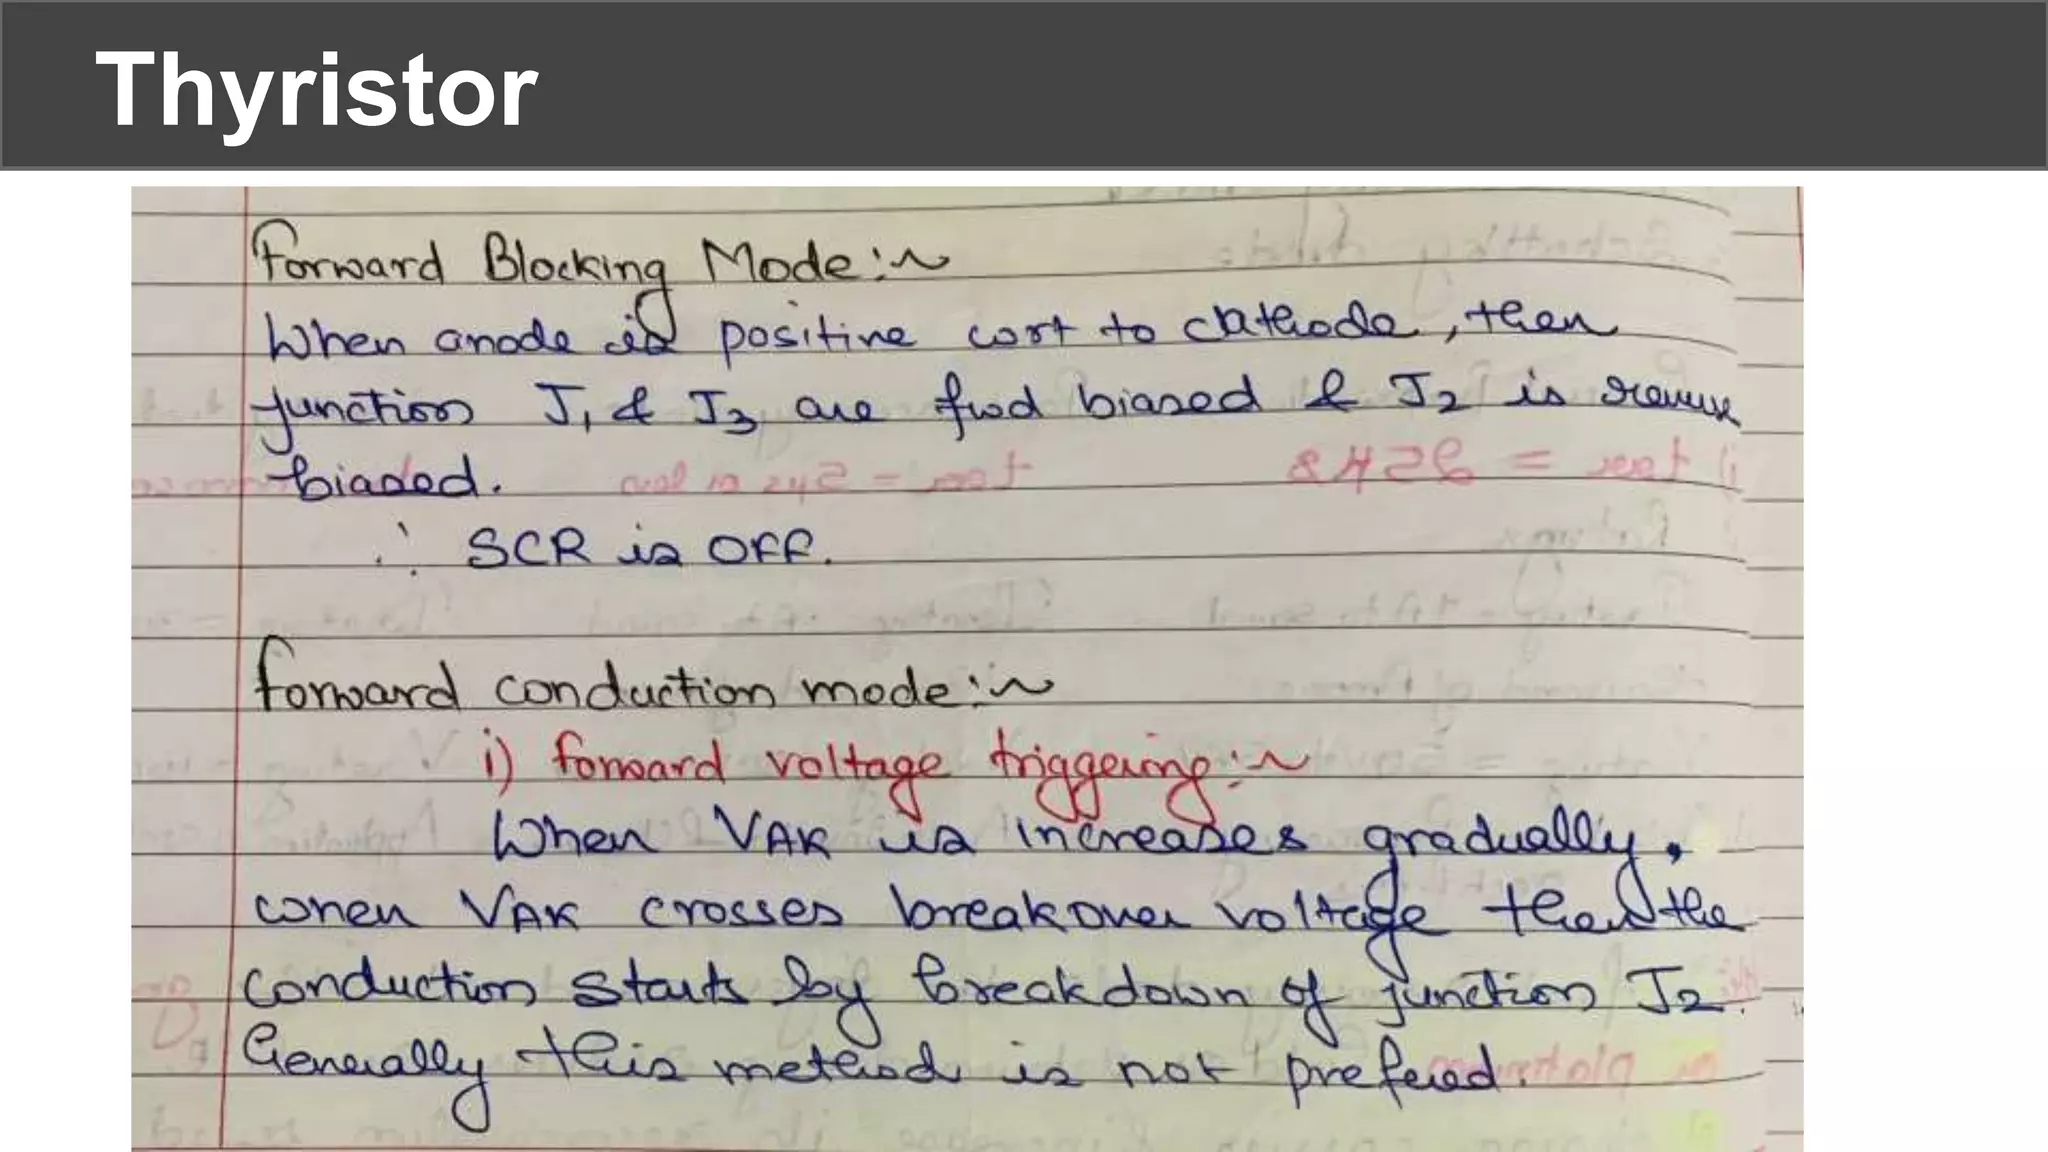 Thyristor
Forward Blocking Mode:~
When anode is positive wrt to cathode, then
junction J1 & J3 are fwd biased & J2 is reverse
biased.
∴ SCR is OFF.
Forward conduction mode:~
i) forward voltage triggering:~
When VAK is increases gradually,
when VAK crosses breakover voltage then the
conduction starts by breakdown of junction J2.
Generally this method is not prefered.